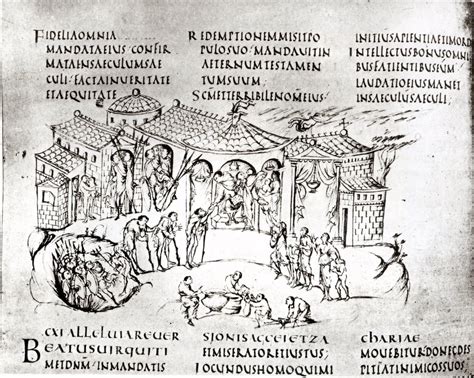 FIDELIAOMNIA
MANDATAEIUS·CONFIR
MATAINSAECULUMSAE
CULI·FACTAINUERITATE
ETAEQUITATE
REDEMPTIONEMMISITPO
PULOSUO·MANDAUITIN
AETERNUMTESTAMEN
TUMSUUM·
SCMETTERRIBILENOMEIUS·
INITIUSAPIENTIAETIMORD
INTELLECTUSBONUSOMNI
BUSFACIENTIBUSEUM·
LAUDATIOEIUSMANET
INSAECULUSAECULI·
CXI ALLELUIA REUER
BEATUSUIRQUITI
METDNM·INMANDATIS
SIONIS ACCEI ETZA
ETMISERATORETIUSTUS·
IOCUNDUSHOMOQUIMI
CHARIAE
MOUEBITUR DONECDES
PITIATINIMICOSSUOS·